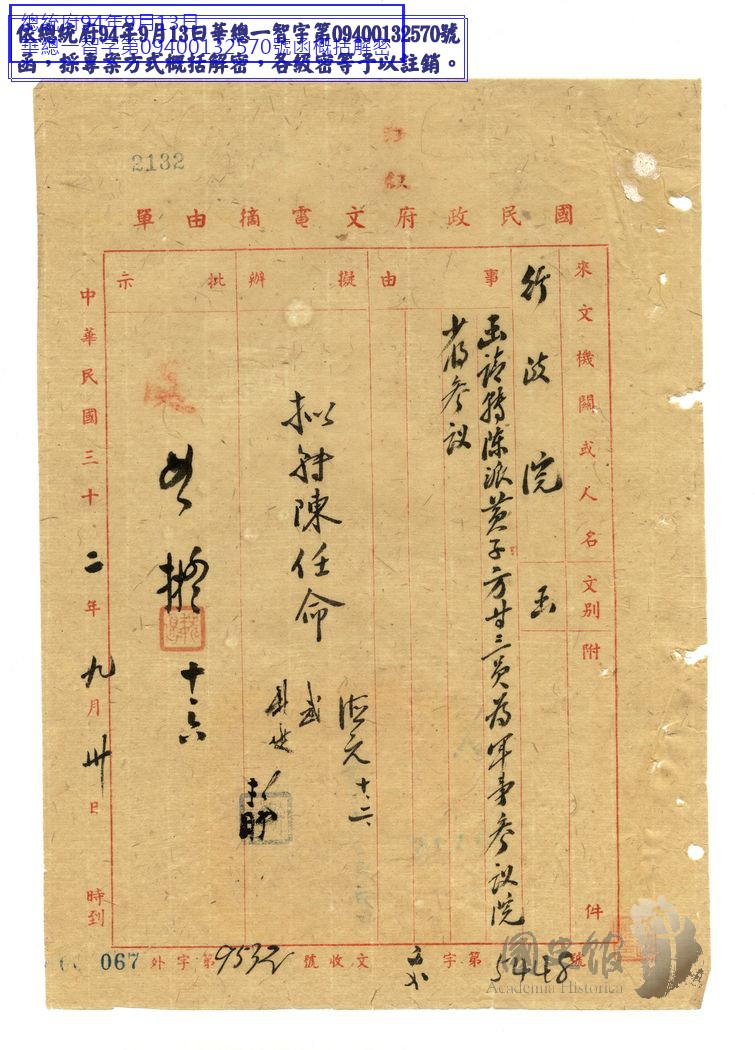 總統府94年9月13日
華總一智字第09400132570號函概括解密
依總統府94年9月13日華總一智字第09400132570號
函，採專案方式概括解密，各級密等予以註銷。
2132
國民政府文電摘由單
來文機關或人名
文別
附件
行政院
函
事由
函請轉陳派黃子方廿三員為軍事參議院
少將參議
擬辦
擬轉陳任命
十.二.
批示
十.六
中華民國三十二年九月卅日時到
字第5448號
收文
外字第9532號
067
國史館
Academia Historica